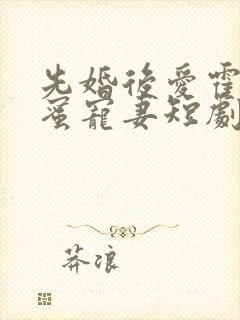 先婚後愛霍
蜜寵妻短劇
莽浪